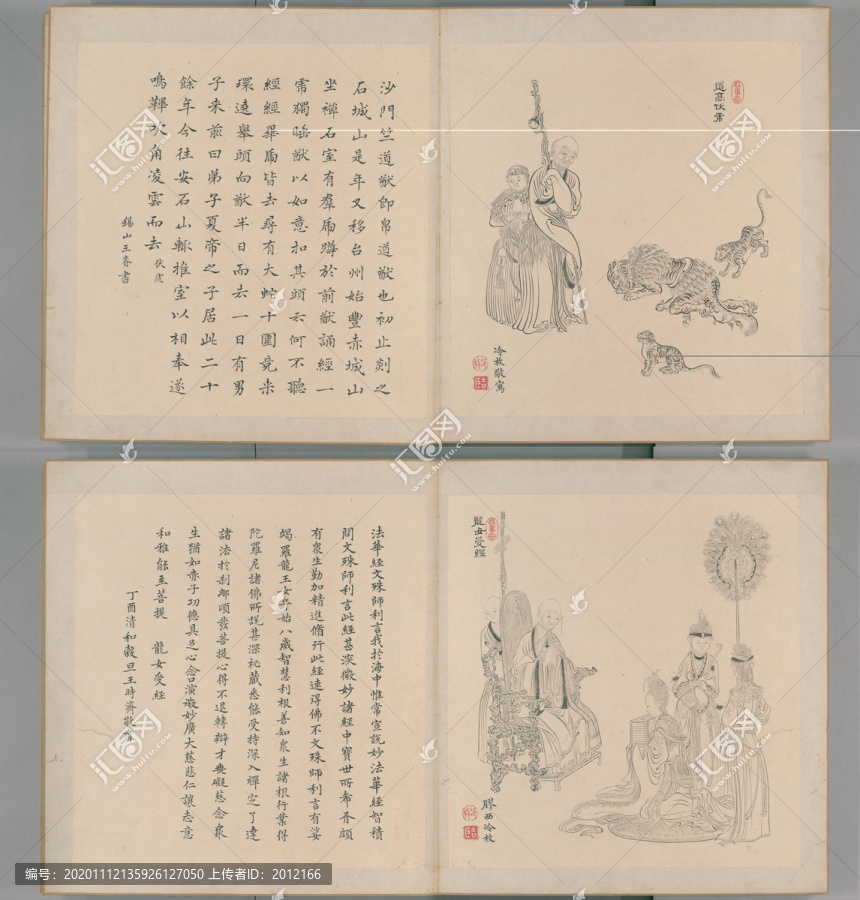 道高伏虎
冷枚敬寫
沙門竺道猷即帛道猷也初止剡之
石城山是年又移台州始豐赤城山
坐禪石室有羣虎蹲於前猷誦經一
虎獨睡猷以如意扣其頭云何不聽
經經畢虎皆去尋有大蛇十圍竟來
環遶舉頭向猷半日而去一日有男
子來前曰弟子夏帝之子居此二十
餘年今往安石山輒推室以相奉遂
鳴鞞吹角凌雲而去 伏虎
錫山王春書
龍女受經
膠西冷枚
法華經文殊師利言我於海中惟常宣說妙法華經智積
問文殊師利言此經甚深微妙諸經中寶世所希有頗
有衆生勤加精進脩行此經速得佛不文殊師利言有娑
竭羅龍王女年始八歲智慧利根善知衆生諸根行業得
陀羅尼諸佛所說甚深祕藏悉能受持深入禪定了達
諸法於刹那頃發菩提心得不退轉辯才無礙慈念衆
生猶如赤子功德具足心念口演微妙廣大慈悲仁讓志意
和雅能至菩提 龍女受經
丁酉清和穀旦王時濟敬書
汇图网
www.huitu.com
编号：20201112135926127050 上传者ID：2012166